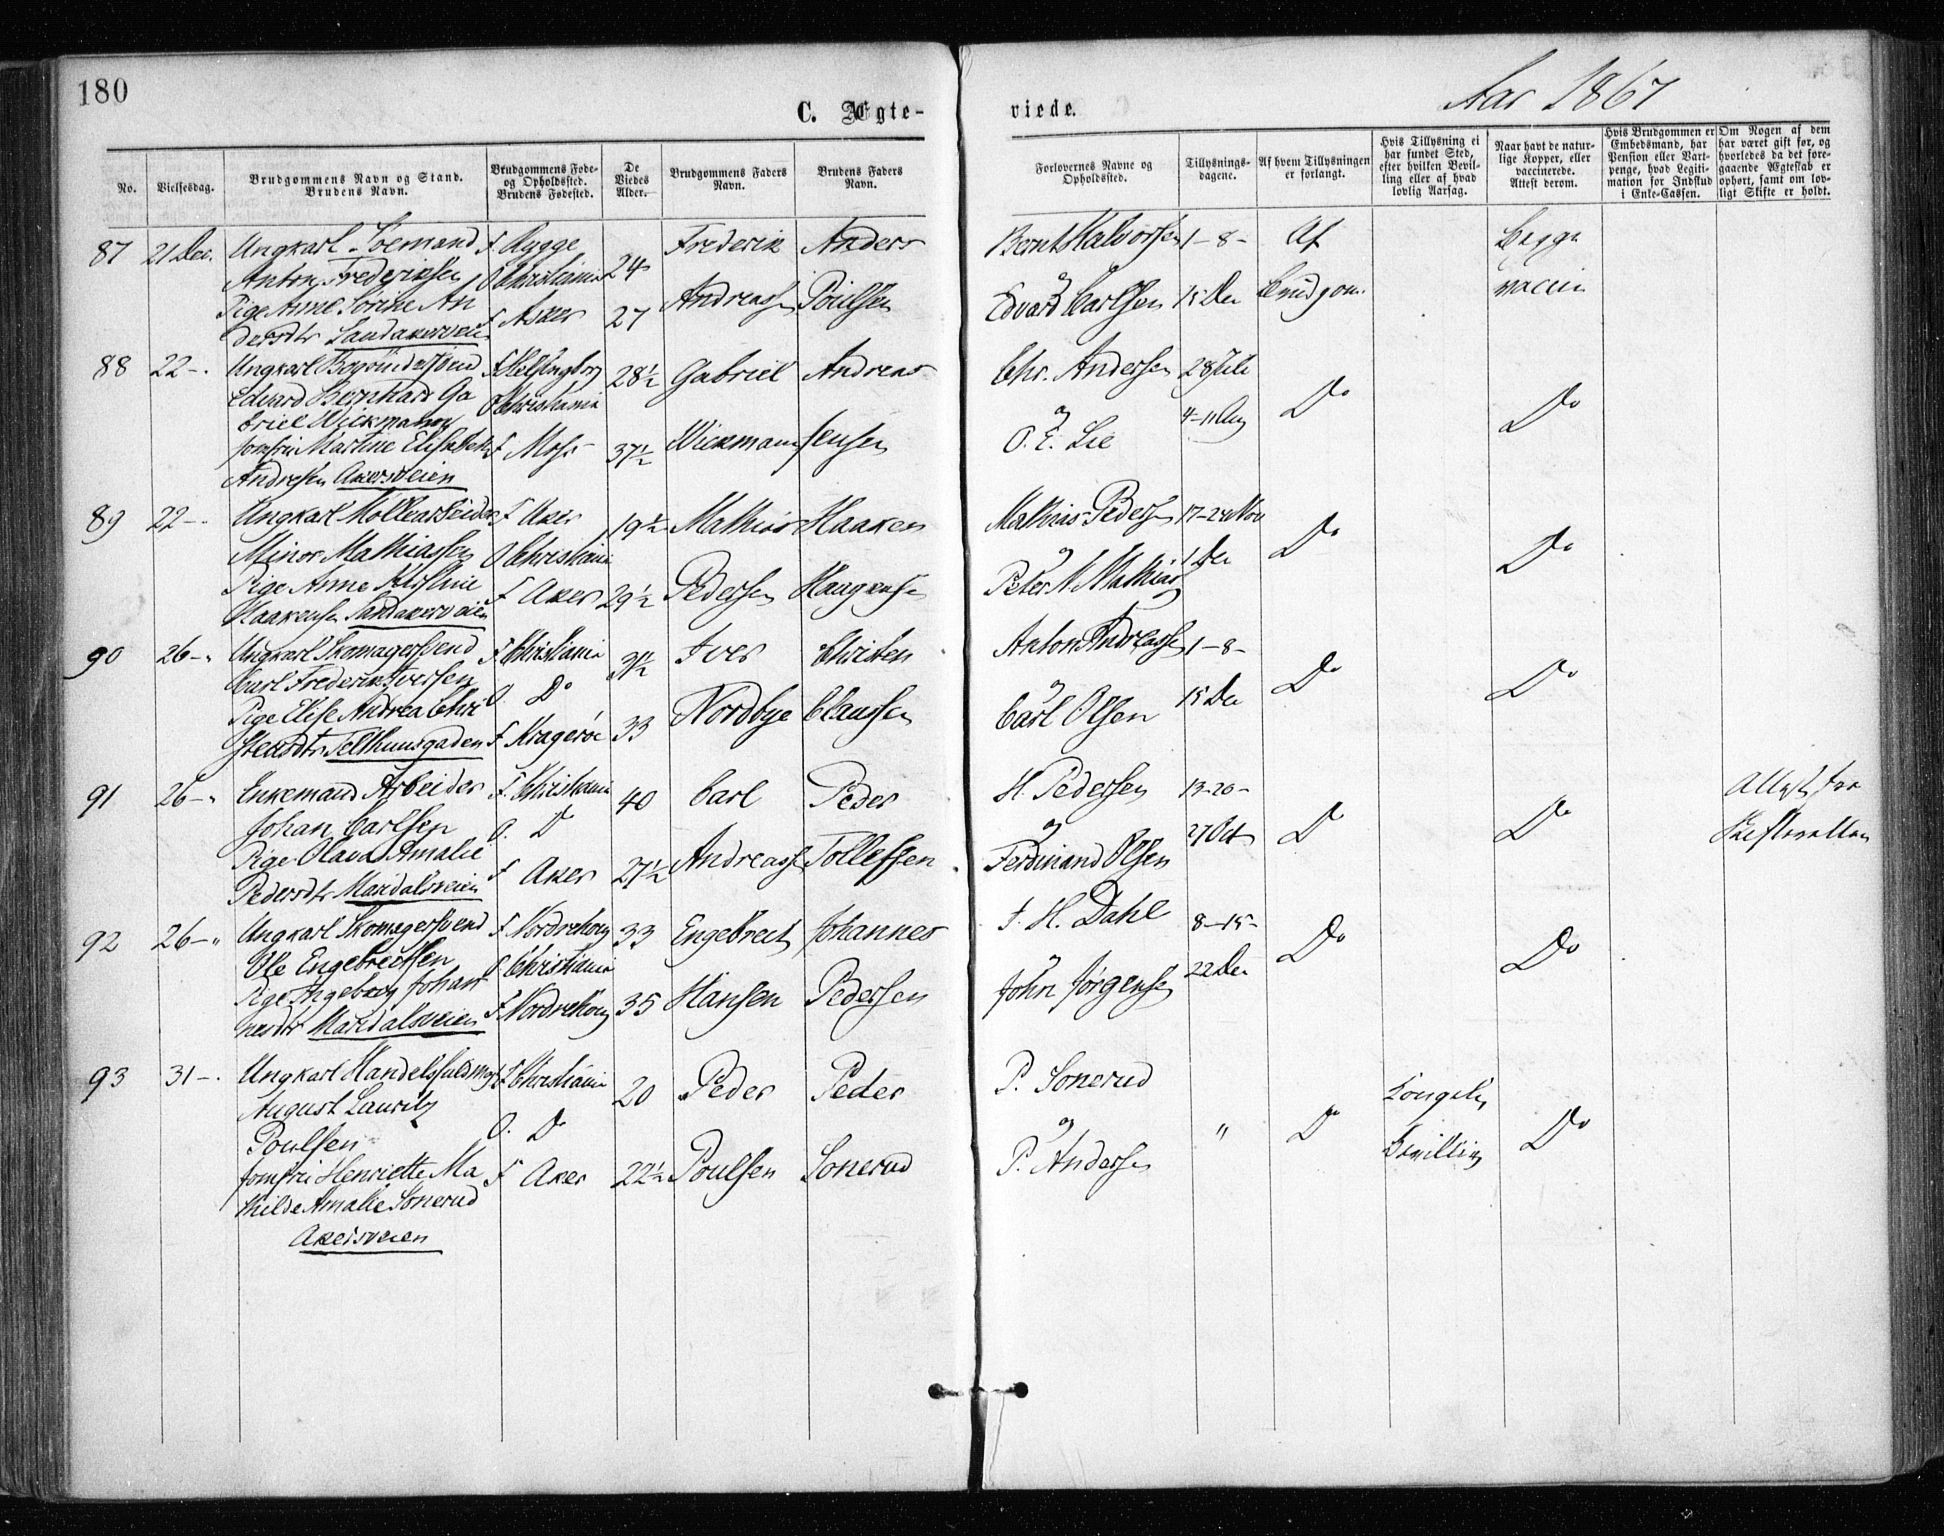 180
C. Ægte-
viede.
Aar 1867
No.
Vielsesdag.
Brudgommens Navn og Stand.
Brudens Navn.
Brudgommens Føde-
og Opholdssted.
Brudens Fødested.
De
Viedes
Alder.
Brudgommens Faders
Navn.
Brudens Faders
Navn.
Forlovernes Navne og
Opholdssted.
Tillysnings-
dagene.
Af hvem Tillysningen
er forlangt.
Hvis Tillysning ei
har fundet Sted,
efter hvilken Bevil-
ling eller af hvad
lovlig Aarsag.
Naar havt de natur-
lige Kopper, eller
vaccinerede.
Attest derom.
Hvis Brudgommen er
Embedsmand, har
Pension eller Vart-
penge, hvad Legiti-
mation for Indskud
i Enke-Cassen.
Om Nogen af dem
har været gift før, og
hvorledes da det fore-
gaaende Ægteskab er
ophørt, samt om lov-
ligt Skifte er holdt.
87 21 Dec. Ungkarl Soemand F. Rygge 24 Frederik Anders Bernt Halvorsen 1-8- Af Begge
Anton Frederiksen O Christiania
Pige Anne Sørine An F Asker 27 Andreassen Poulsen og Edvard Carlsen 15 Dec Brudgom. vaccin
dersdtr Sandakerveien
88 22-. Ungkarl F Helsingborg 28½ Gabriel Andreas Chr. Andersen 28 Juli
Edvard Bernhard Ga O Christiania 4-11 Aug Do Do
briel Wickmann og
Jomfru Martine Elisabeth F Moss 37½ Wickmann Jensen O. E. Lie
Andresen Akersveien
89 22-. Ungkarl Møllearbeider F Aker 19½ Mathias Haaken Mathias Pedersen 17-24 Nov
Minor Mathiassen O Christiania og 1 Dec Do Do
Pige Anne Kirstine F Aker 29½ Pedersen Haugensen Peter A Mathias
Haakensen Sandakerveien
90 26-" Ungkarl Skomagersvend F Christiania 31½ Iver Christen Anton Andreassen 1-8-
Carl Frederik Iversen O. Do og 15 Dec Do Do
Pige Elise Andrea Chri F Kragerøe 33 Nordbye Claussen Carl Olsen
stensdtr Telthuusgaden
91 26-" Enkemand Arbeider F. Christiania 40 Carl Peder H. Pedersen 13-20- Attest fra
Johan Carlsen O. Do og 27 Oct Do Do Skifteretten
Pige Olava Amalie F Aker 27½ Andreassen Tollefsen Ferdinand Olsen
Pedersdtr Maridalsveien
92 26-" Ungkarl Skomagersvend F. Nordrehoug 33 Engebret Johannes J. H. Dahl 8-15-
Ole Engebretsen O Christiania og 22 Dec Do Do
Pige Ingeborg Johan F Nordrehoug 35 Hansen Pedersen John Jørgensen
nesdtr Maridalsveien
93 31-. Ungkarl Handelsfuldmægt F Christiania 20 Peder Peder P. Sonerud Kongelig
August Lauritz O. Do og " Do Bevilling Do
Poulsen
Jomfru Henriette Ma F Aker 22½ Poulsen Sonerud P. Andersen
thilde Amalie Sonerud
Akersveien